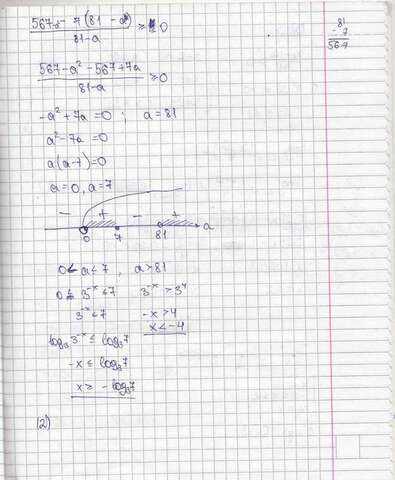 567-a² - 7(81 - a) / 81-a ≥ 0
81
· 7
567
567-a²-567+7a / 81-a ≥0
-a²+7a=0 ; a=81
a²-7a=0
a(a-7)=0
a=0, a=7
- + - +
0 7 81 a
0<a≤7, a>81
0≤3^-x≤7 3^-x>3^4
3^-x≤7 -x>4
x<-4
log₃3^-x≤log₃7
-x≤log₃7
x≥-log₃7
(2)